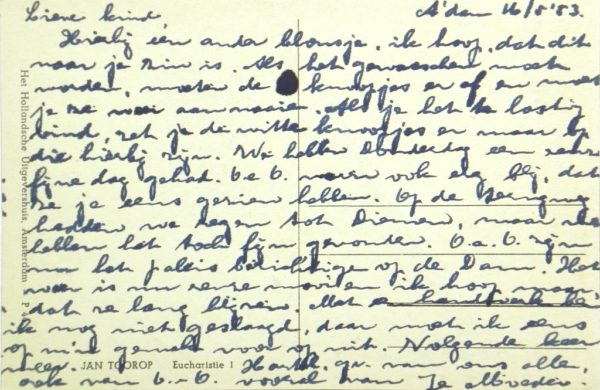 A'dam 16/5 '53.
Lieve kind,
Hierbij een ander blousje, ik hoop, dat dit
naar je zin is. Als het gewasschen moet
worden, moeten de knoopjes er af en moet
je ze weer aannaaien. Als je het te lastig
vind, zet je de witte knoopjes er maar op
die hierbij zijn. We hebben Donderdag een zeer
fijne dag gehad. waren ook erg blij, dat
ze je eens gezien hebben. Op de terugweg
hadden we regen tot Diemen, maar we
hebben het toch fijn gevonden. zijn
nu het paleis bezichtigen op de Dam. Het
weer is nu mooi en ik hoop maar
dat ze lang blijven. Met een handwerk ben
ik nog niet geslaagd, daar moet ik eens
op m'n gemak voor op uit. Nolgende keer
meer. Hartel. gr. van ons allen,
ook van vooral van Je Moeder.
JAN TOOROP Eucharistie 1
Het Hollandsche Uitgevershuis, Amsterdam